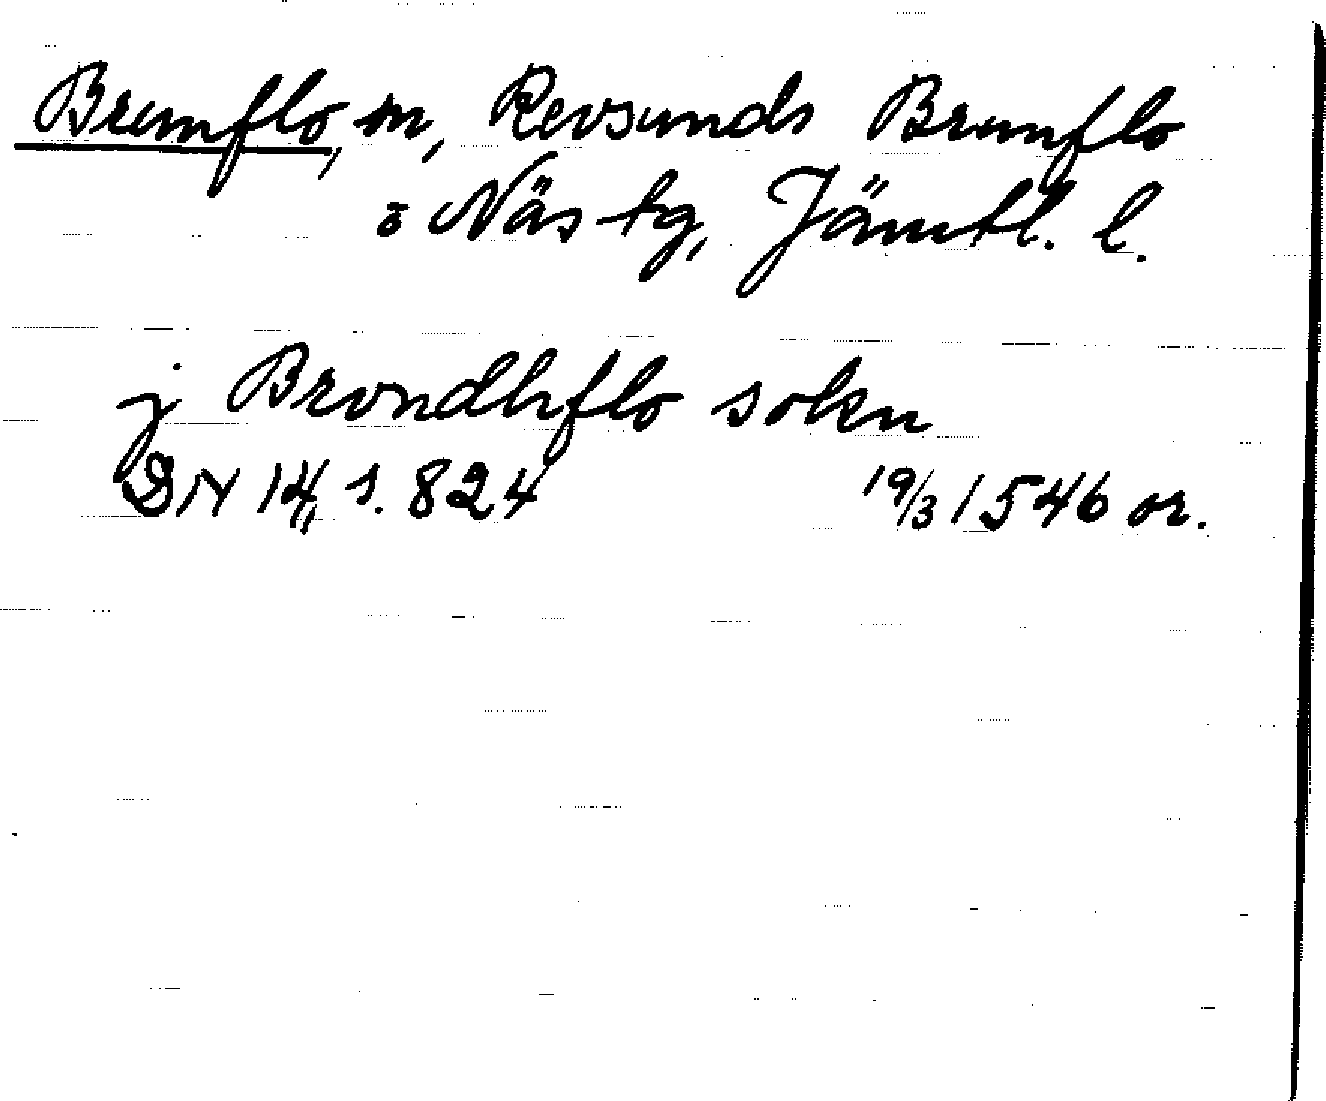 Brunflo, sn, Revsunds Brunflo
o Näs tg, Jämtl. l.
j Brvndhflo sokn
DN 14, s. 824 19/3 1546 or.